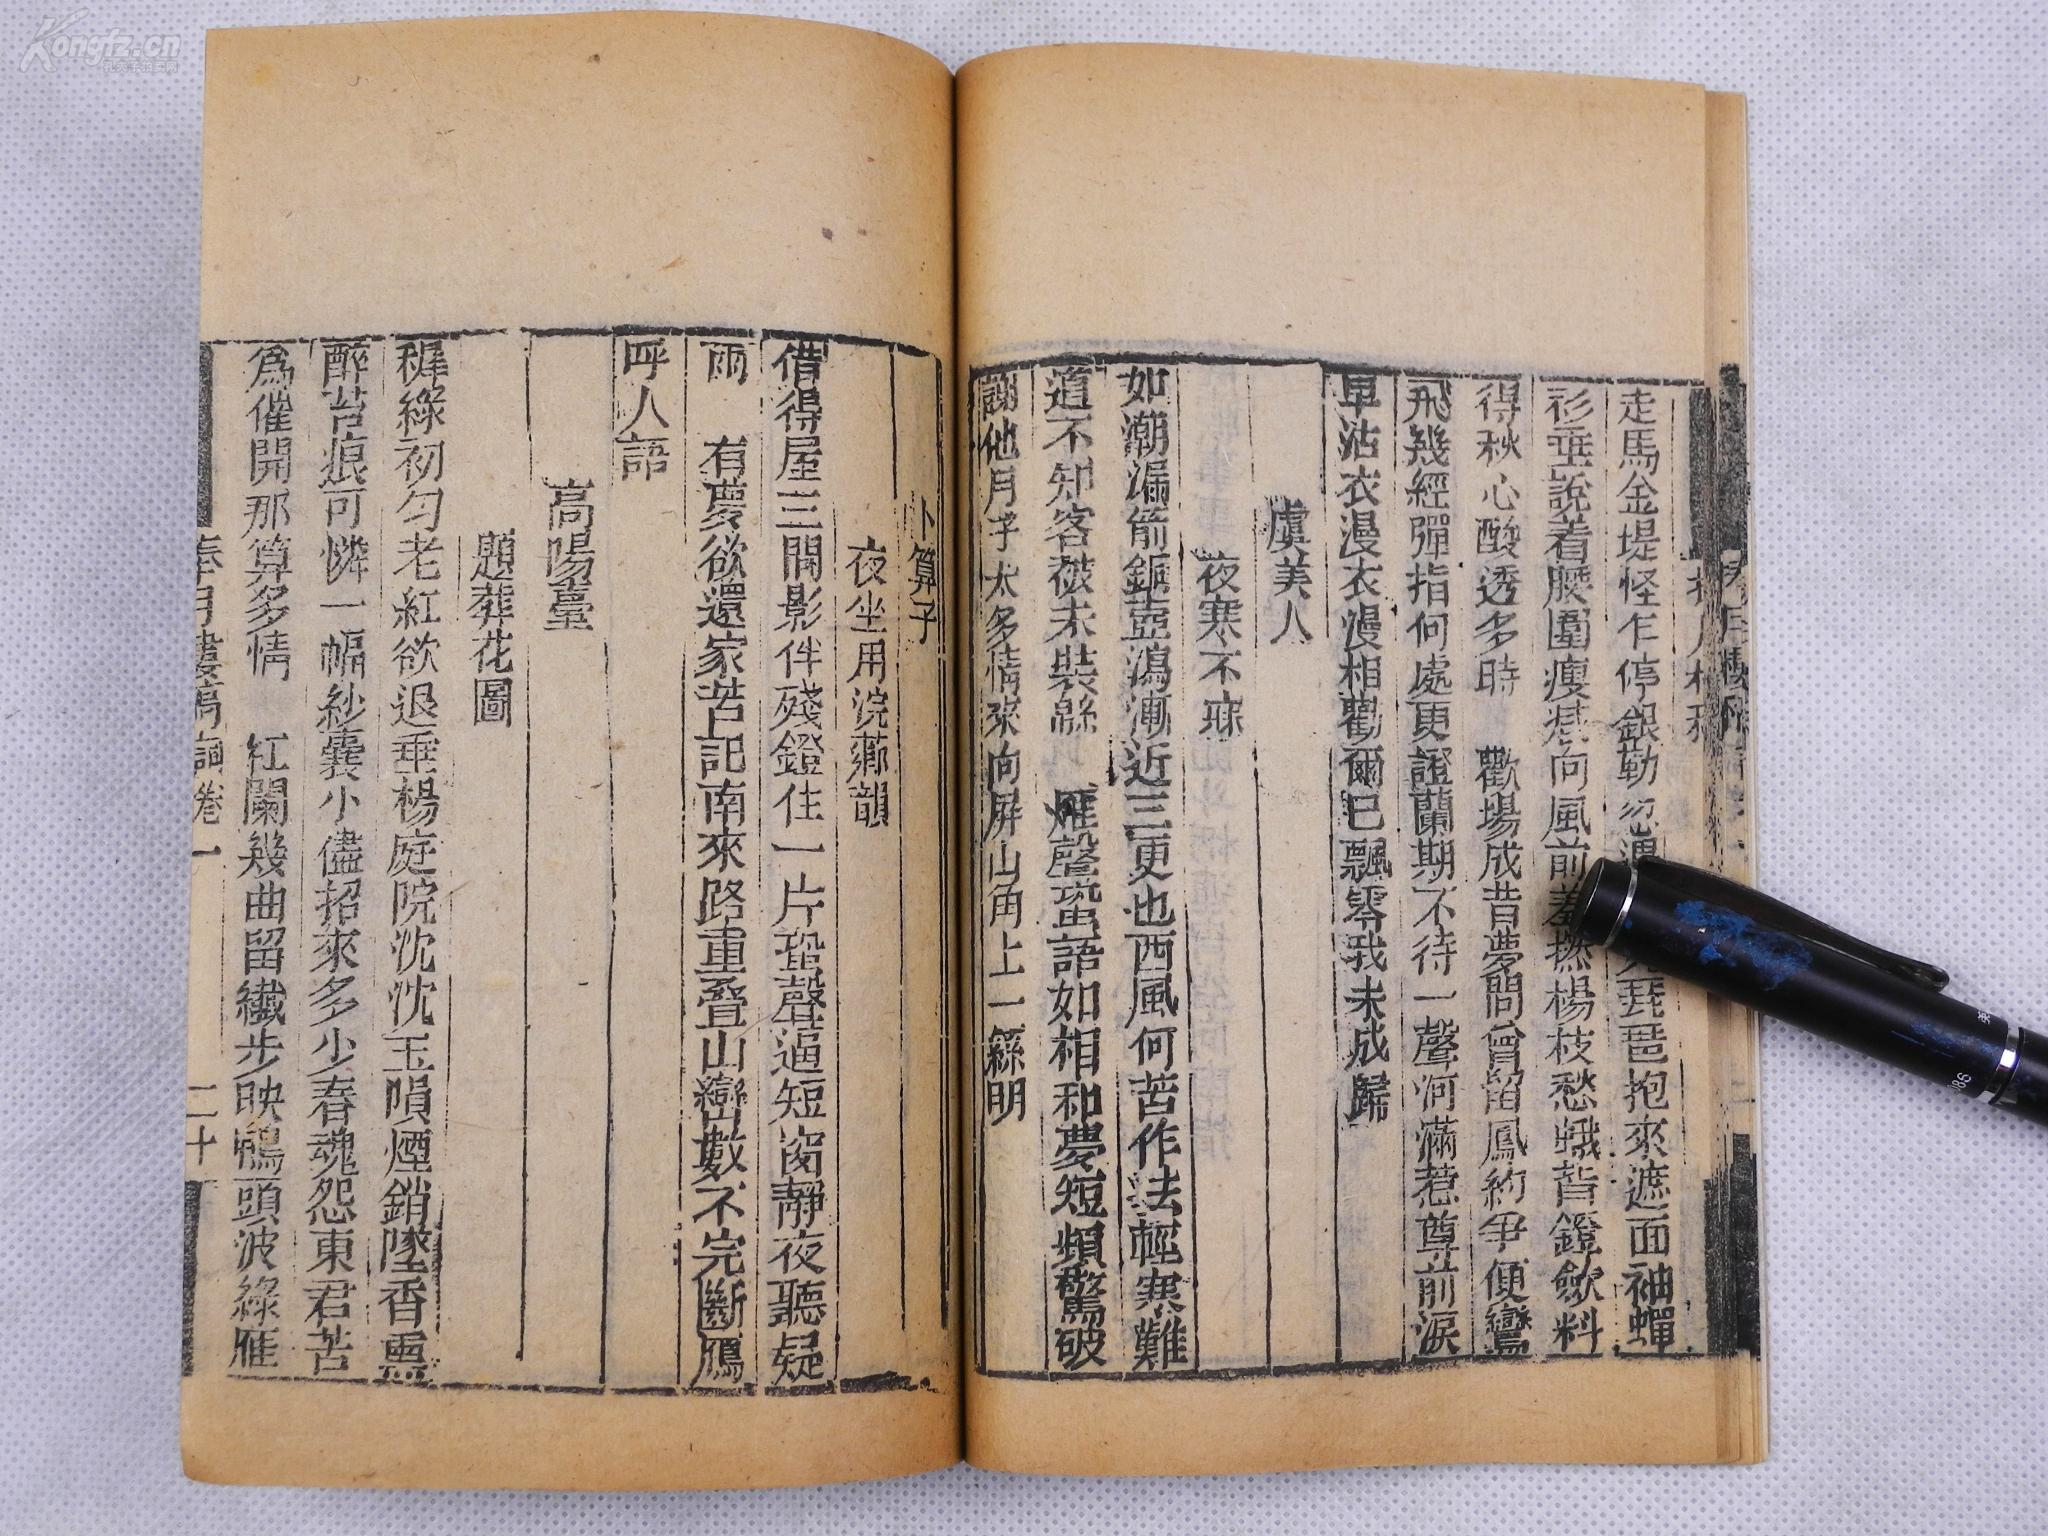 走馬金堤怪乍停銀勒忽遇琵琶抱來遮面袖蟬
衫垂說着腰圍瘦甚向風前羞撚楊枝愁蛾背鐙斂料
得秋心酸透多時　歡場成昔夢問曾留鳳約爭便鸞
飛幾經彈指何處更證蘭期不待一聲河滿惹尊前淚
早沾衣漫衣漫相勸爾已飄零我未成歸
虞美人
夜寒不寐
如潮漏箭銅壺瀉漸近三更也西風何苦作法輕寒難
道不知客被未裝緜　雁聲蛩語如相和夢短頻驚破
謝他月子太多情來向屏山角上一繇明
卜算子
夜坐用浣薌韻
借得屋三間影伴殘鐙住一片蛩聲逼短窗靜夜聽疑
雨　有夢欲還家苦記南來路重疊山巒數不完斷鴈
呼人語
高陽臺
題葬花圖
穉綠初勻老紅欲退垂楊庭院沈沈玉隕煙銷墜香
醉苔痕可憐一幅紗囊小儘招來多少春魂怨東君苦
爲催開那算多情　紅闌幾曲留纖步映鴨頭波綠雁
奉月樓稿詞卷一
二十
Kongfz.cn
孔夫子拍卖网
986